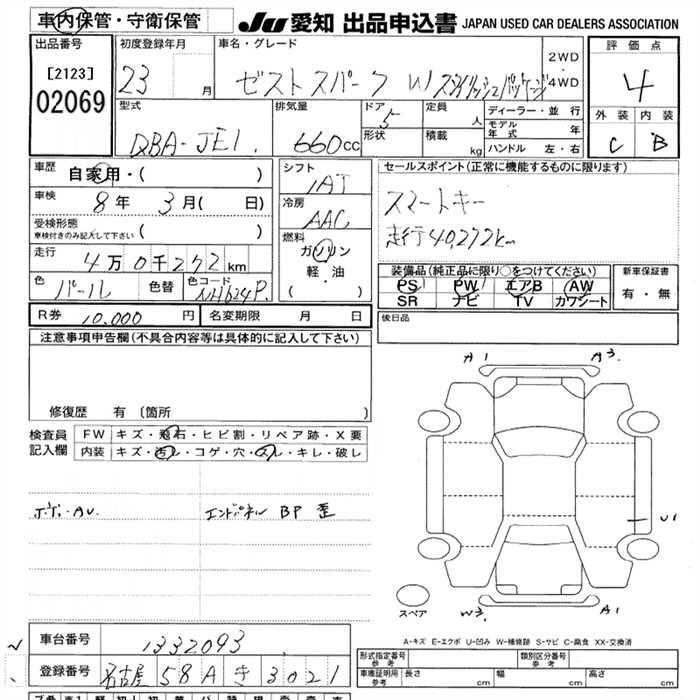 車内保管・守衛保管
JU 愛知 出品申込書 JAPAN USED CAR DEALERS ASSOCIATION
出品番号
[2123]
02069
初度登録年月
23 月
車名・グレード
ゼスト スパーク W スタイリッシュパッケージ
2WD
4WD
評価点
4
外装 内装
C B
型式
DBA-JE1.
排気量
660cc
ドア 5
形状
定員 人
積載 kg
ディーラー・並行
モデル年式 年
ハンドル 左・右
車歴
自家用・( )
車検
8年 3月( 日)
受検形態
車検付きのみ記入して下さい ( )
走行
4万0千272km
色
パール
色替
色コード
NH624P.
シフト
IAT
冷房
AAC
燃料
ガソリン
軽・油
( )
セールスポイント(正常に機能するものに限ります)
スマートキー
走行40272km
装備品(純正品に限り○をつけてください)
PS PW エアB AW
SR ナビ TV カワシート
新車保証書
有・無
R券 10,000円 名変期限 月 日
後日品
注意事項申告欄(不具合内容等は具体的に記入して下さい)
修復歴 有〔箇所 〕
検査員
記入欄
FW キズ・飛石・ヒビ割・リペア跡・X要
内装 キズ・汚レ・コゲ・穴・スレ・キレ・破レ
ボディAU. エンドパネル BP 歪
A1 A3.
U1
W3. A1
スペア
A-キズ E-エクボ U-凹み W-補修跡 S-サビ C-腐食 XX-交換済
車台番号 1332093
登録番号 名古屋 58A き 3021
形式指定番号
参考
類別区分番号
参考
車庫証明用
参考
長さ cm 幅 cm 高さ cm